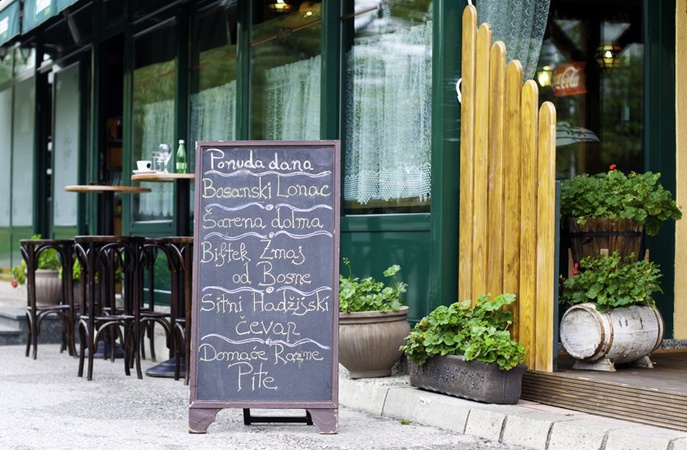 Ponuda dana
Bosanski Lonac
Šarena dolma
Biftek Zmaj
od Bosne
Sitni Hadžijski
ćevap
Domaće Razne
Pite
Coca-Cola